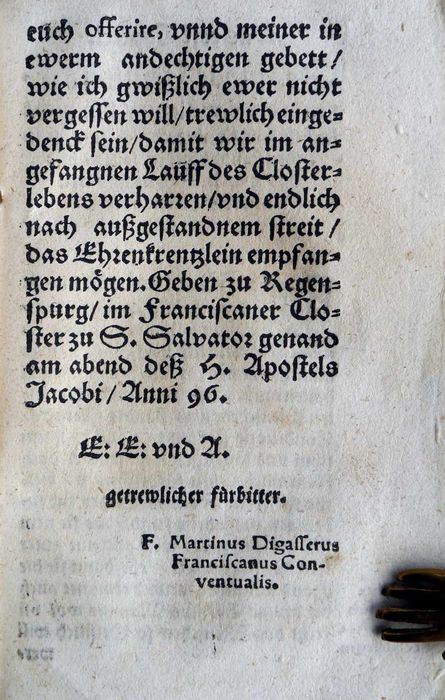 euch offerire, vnnd meiner in
ewerm andechtigen gebett/
wie ich gwißlich ewer nicht
vergessen will/trewlich einge⸗
denck sein/damit wir im an⸗
gefangnen Lauff des Closter⸗
lebens verharren/vnd endlich
nach außgestandnem streit/
das Ehrenkrentzlein empfan⸗
gen mögen. Geben zu Regen⸗
spurg/im Franciscaner Clo⸗
ster zu S. Salvator genand
am abend deß H. Apostels
Jacobi/Anni 96.
E: E: vnd A.
getrewlicher fürbitter.
F. Martinus Digasserus
Franciscanus Con-
ventualis.